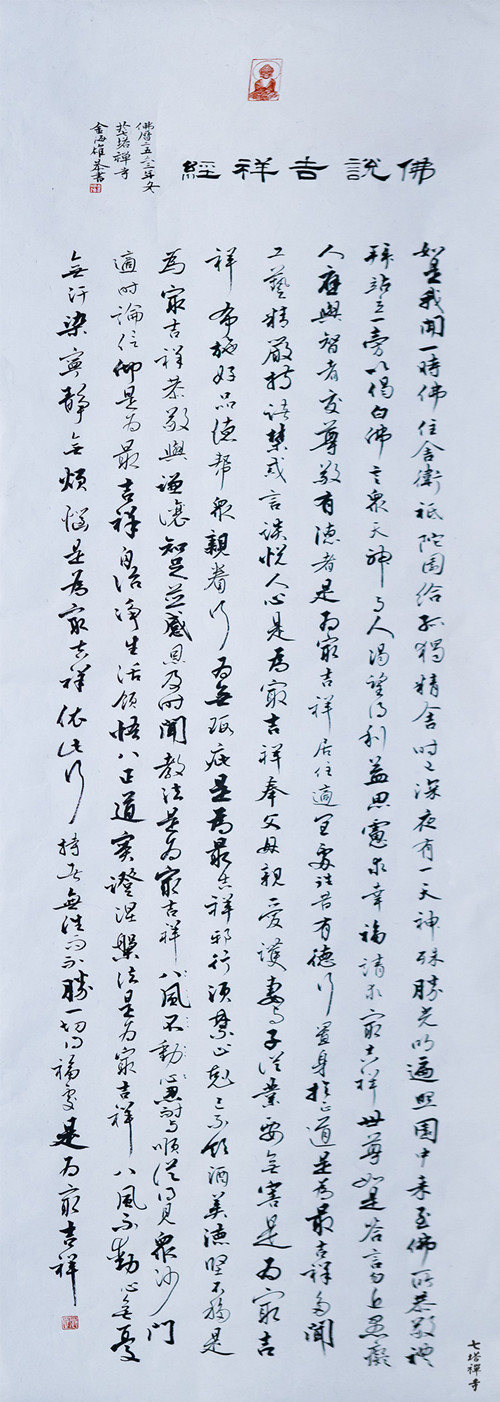 佛說吉祥經
如是我聞一時佛住舍衛祇陀園給孤獨精舍時之深夜有一天神殊勝光明遍照園中來至佛所恭敬禮
拜站立一旁以偈白佛言眾天神與人渴望得利益思慮求幸福請示最吉祥世尊如是答言勿近愚癡
人應與智者交尊敬有德者是為最吉祥居住適宜處往昔有德行置身於正道是為最吉祥多聞
工藝精嚴持諸禁戒言談悅人心是為最吉祥奉父母親愛護妻與子從業要無害是為最吉
祥布施好品德幫眾親眷行為無瑕疵是為最吉祥邪行須禁止克己不飲酒美德堅不移是
為最吉祥恭敬與謙讓知足並感恩及時聞教法是為最吉祥八風不動心忍耐與順從得見眾沙門
適時論信仰是為最吉祥自治淨生活領悟八正道實證涅槃法是為最吉祥八風不動心無憂
無汙染寧靜無煩惱是為最吉祥依此行持者無往而不勝一切得福處是為最吉祥
佛曆二五六三年冬
於七塔禪寺
金海雄恭書
七塔禪寺